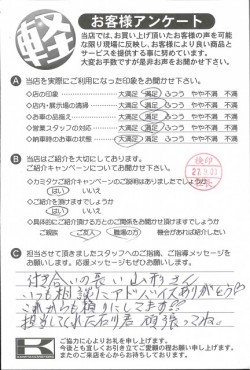 軽
お客様アンケート
当店では、お買い上げ頂いたお客様の声を可能
な限り現場に反映し、お客様により良い商品と
サービスを提供する事に努めています。
大変お手数ですが是非お声をお聞かせ下さい。
A 当店を実際にご利用になった印象をお聞かせ下さい。
◇店の印象 大満足 満足 ふつう やや不満 不満
◇店内・展示場の清掃 大満足 満足 ふつう やや不満 不満
◇お車の品揃え 大満足 満足 ふつう やや不満 不満
◇営業スタッフの対応 大満足 満足 ふつう やや不満 不満
◇納車時のお車の状態 大満足 満足 ふつう やや不満 不満
B 当店はご紹介を大切にしております。
ご紹介キャンペーンについてお聞かせ下さい。
◇カミタケご紹介キャンペーンのご説明はありましたでしょうか
はい いいえ
◇ご紹介を頂けますでしょうか
はい いいえ
◇具体的にご紹介頂ける方とのご関係をお聞かせ頂けますでしょうか
ご親族 ご友人 職場の方 機会があれば紹介したい
C 担当させて頂きましたスタッフへのご指摘、ご指導メッセージを
お願いします。応援メッセージもぜひお願いします。
付き合いの長い山本さん
いつも相談にアドバイスありがとう
これからも頼りにしてます
担当してくれた石君 頑張ってね。
K
ご協力に心よりお礼を申し上げます。
今後とも宜しくお引き立てご愛顧の程お願い申し上げます。
またのご来店を心からお待ちしております。